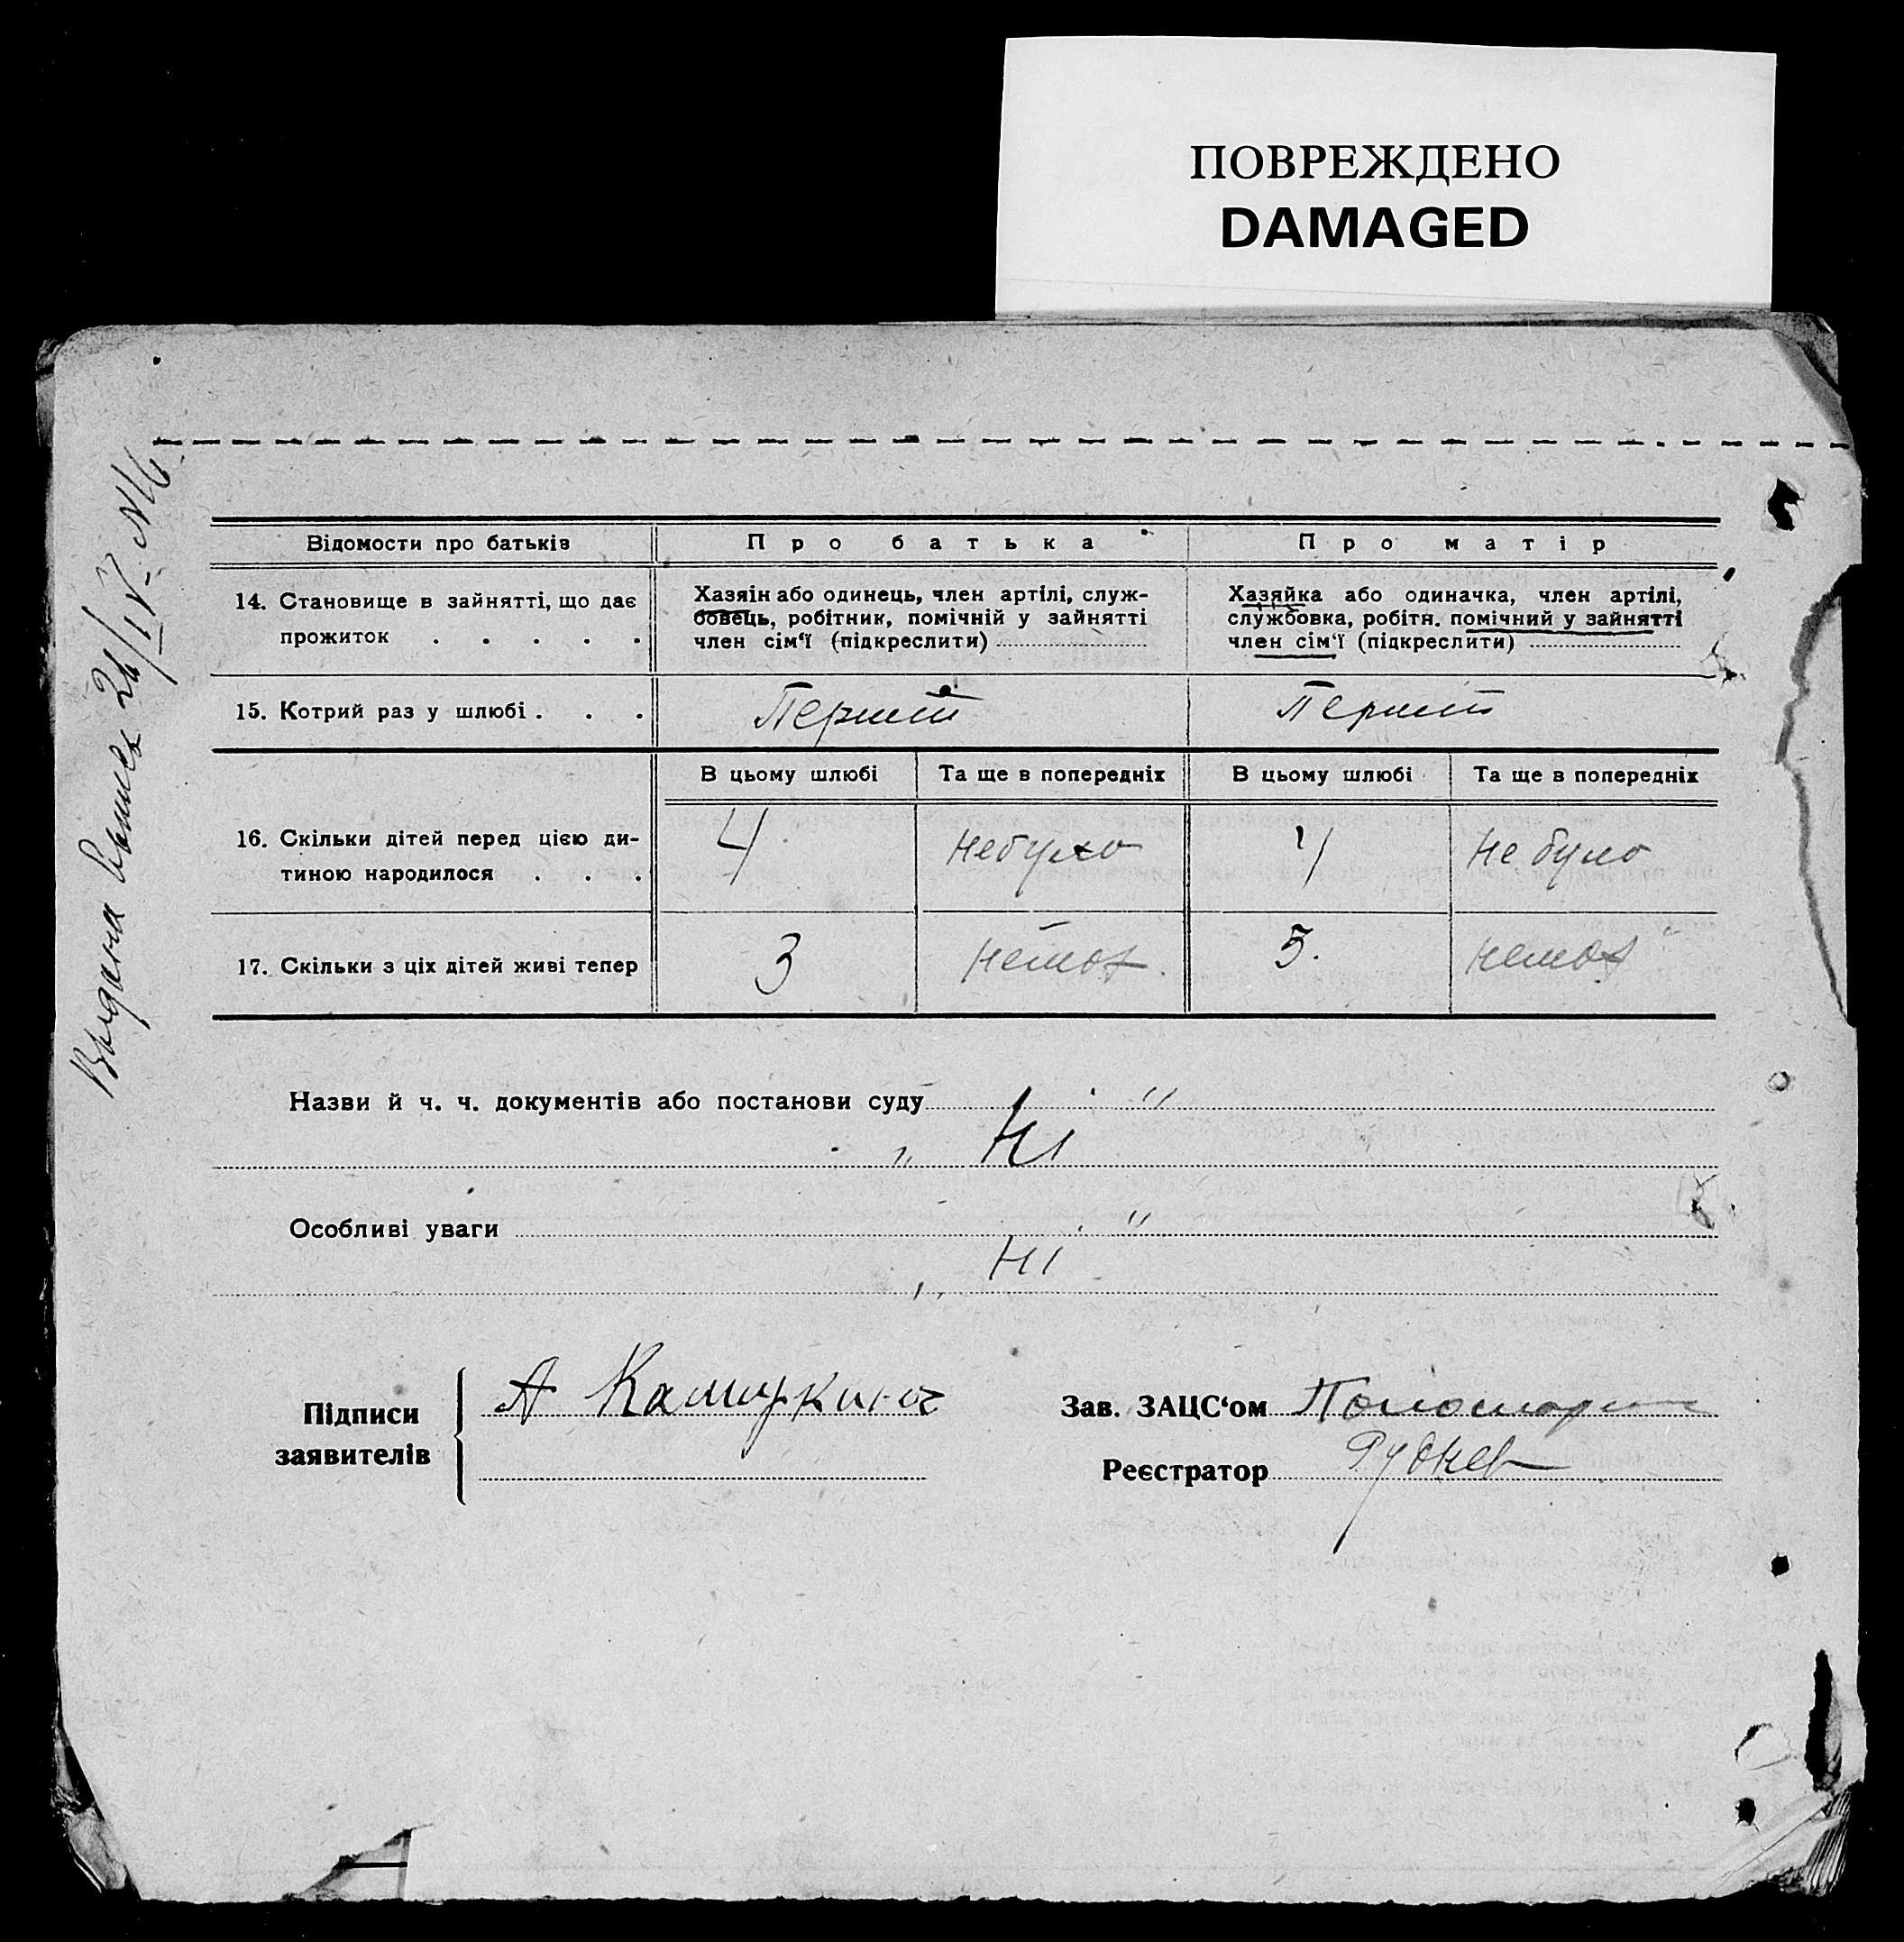 ПОВРЕЖДЕНО
DAMAGED
Выдана выпись 26/IV
Відомости про батьків
Про батька
Про матір
14. Становище в зайнятті, що дає
прожиток . . . . .
Хазяін або одинець, член артілі, служ-
бовець, робітник, помічній у зайнятті
член сім‘ї (підкреслити)
Хазяйка або одиначка, член артілі,
службовка, робітн. помічний у зайнятті
член сім‘ї (підкреслити)
15. Котрий раз у шлюбі . . .
Перший
Перший
В цьому шлюбі
Та ще в попередніх
В цьому шлюбі
Та ще в попередніх
16. Скільки дітей перед цією ди-
тиною народилося . . .
4
небуло
4
не було
17. Скільки з ціх дітей живі тепер
3
немає
3.
немає
Назви й ч. ч. документів або постанови суду
"
" Ні
Особливі уваги
"
Ні
Підписи
заявителів
А
Зав. ЗАЦС‘ом
Реєстратор